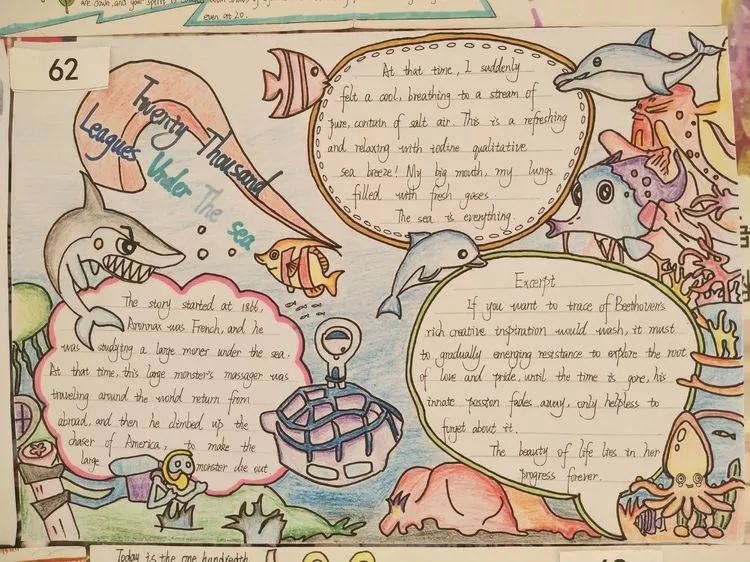 are down, and your spirit is
even at 20.
62
Twenty Thousand
Leagues Under The sea
At that time, I suddenly
felt a cool, breathing to a stream of
pure, contain of salt air. This is a refreshing
and relaxing with iodine qualitative
sea breeze! My big mouth, my lungs
filled with fresh gases.
The sea is everything.
The story started at 1866,
Aronnax was French, and he
was studying a large moner under the sea.
At that time, this large monster's massager was
traveling around the world return from
abroad, and then he climbed up the
chaser of America, to make the
large monster die out
Excerpt
If you want to trace of Beethoven's
rich creative inspiration would wash, it must
to gradually emerging resistance to explore the root
of love and pride, until the time is gone, his
innate passion fades away, only helpless to
forget about it.
The beauty of life lies in her
progress forever.
Today is the one hundredth